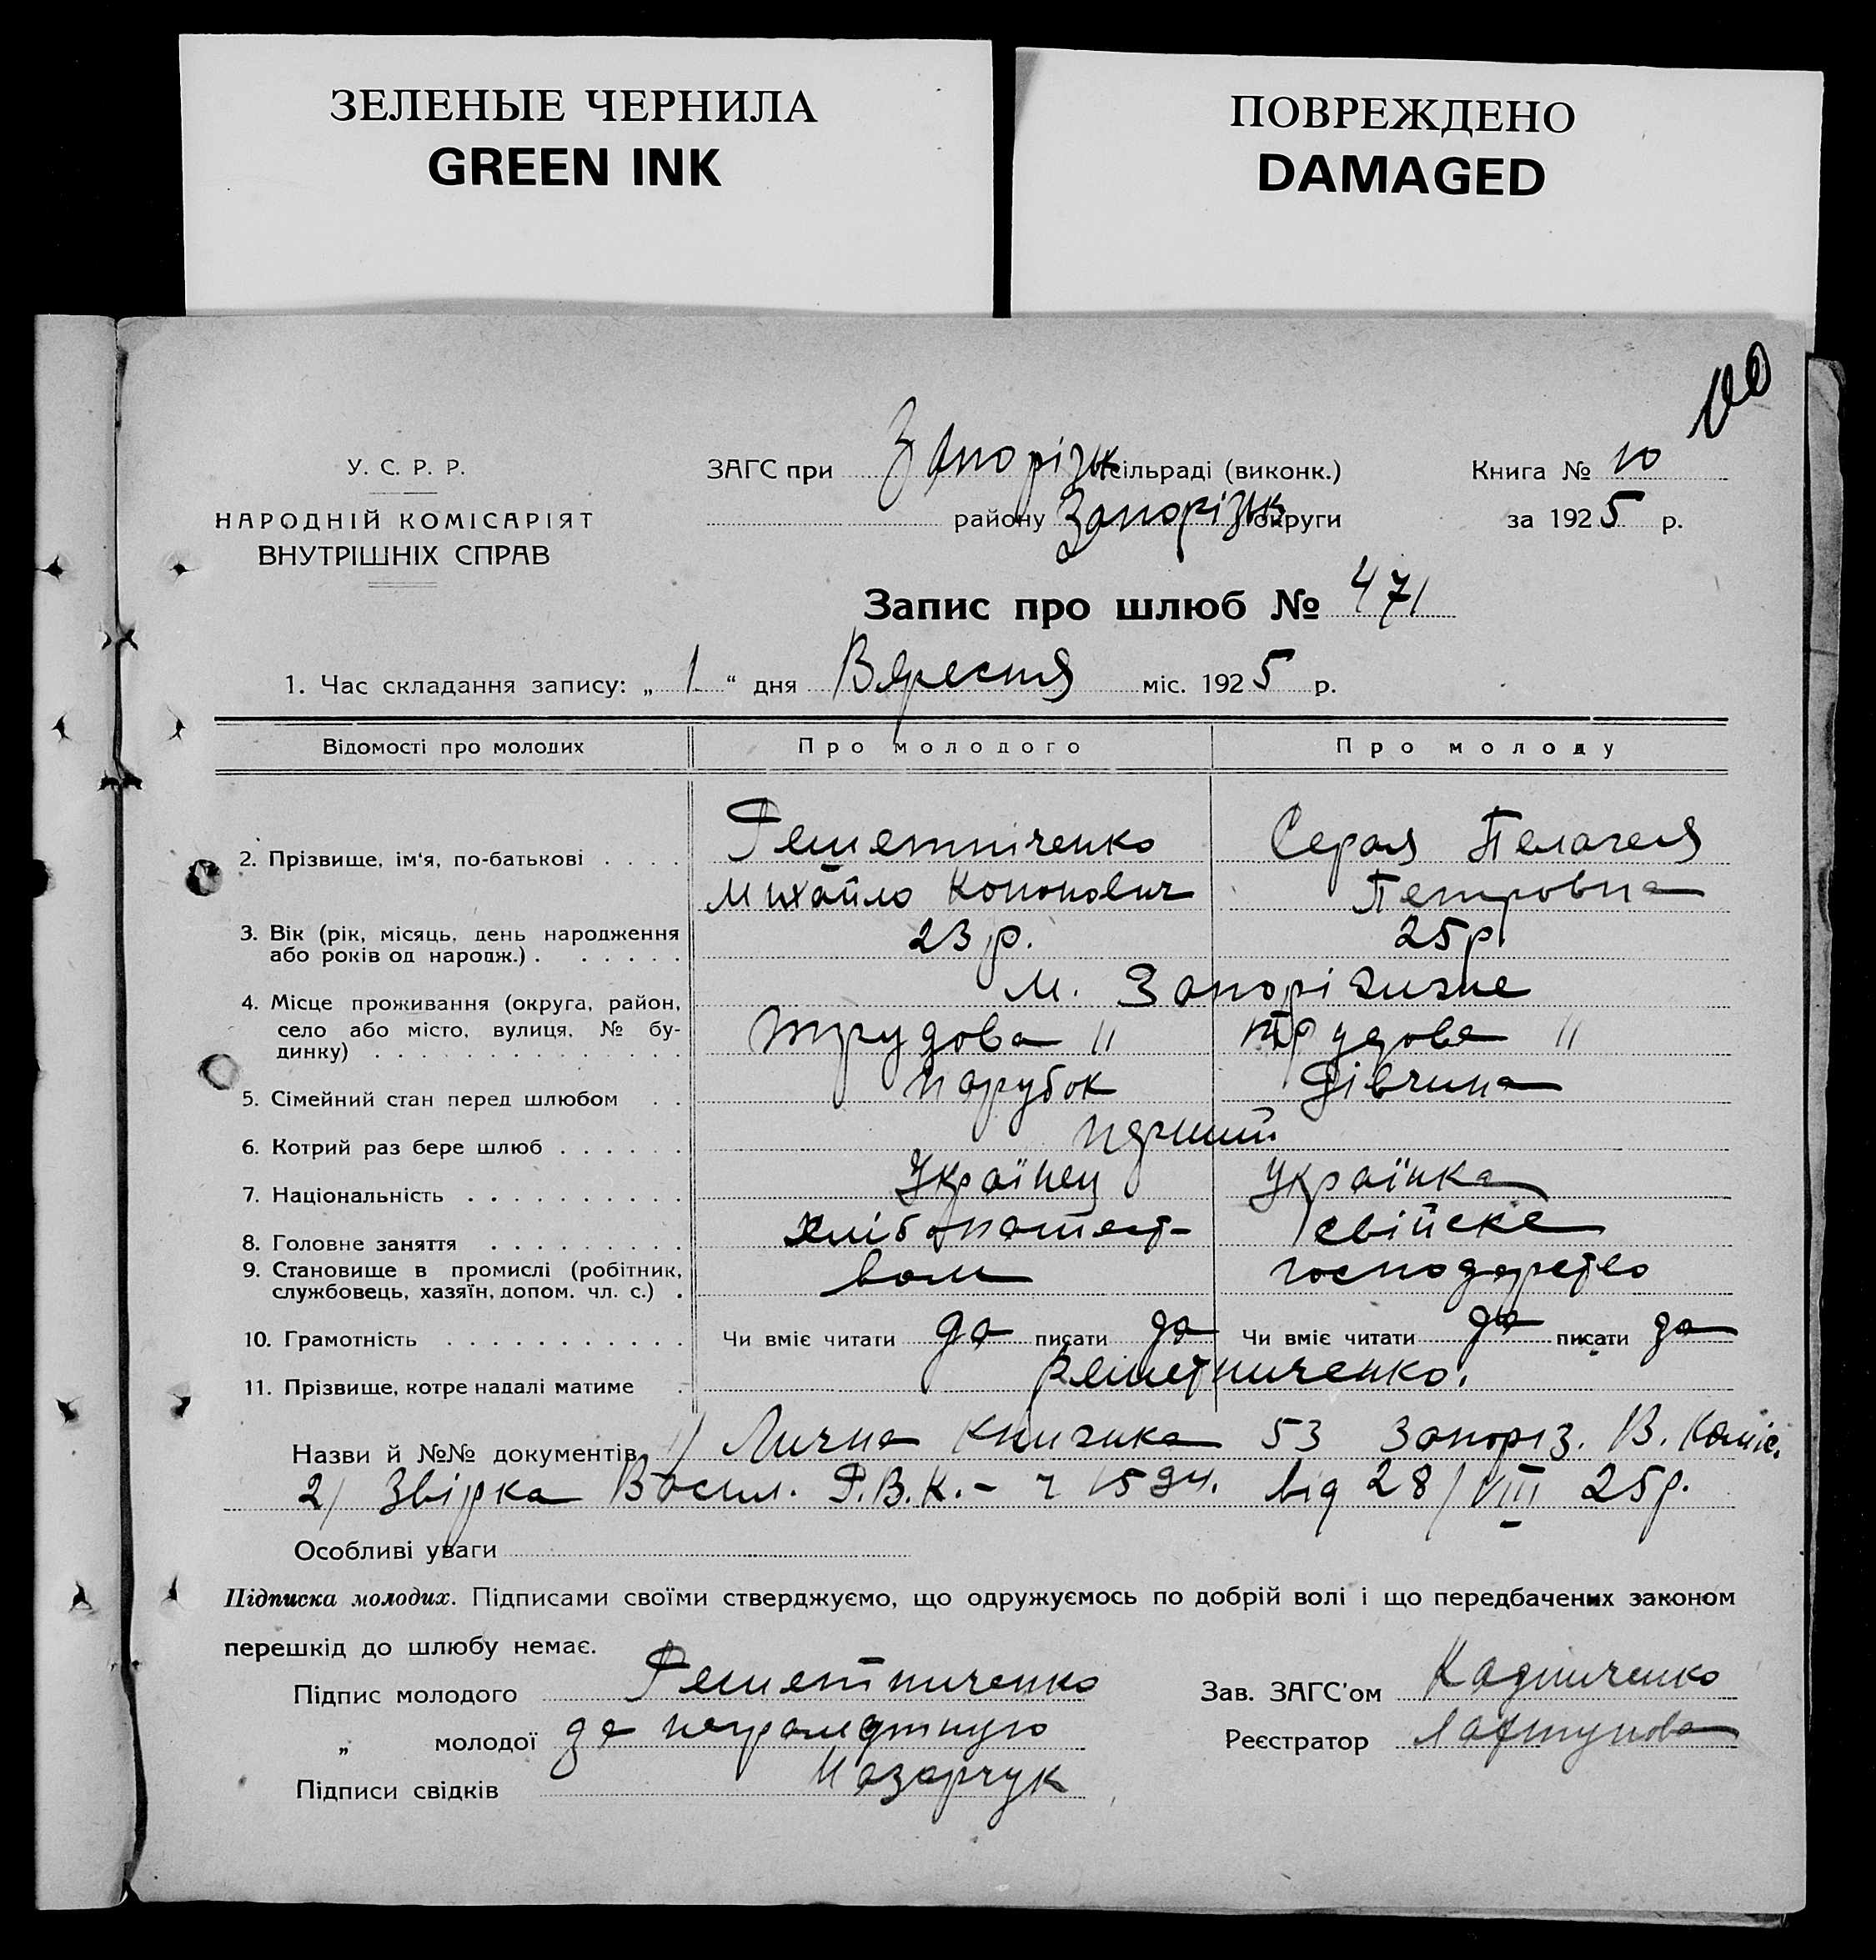 ЗЕЛЕНЫЕ ЧЕРНИЛА
GREEN INK
ПОВРЕЖДЕНО
DAMAGED
100
У. С. Р. Р.
НАРОДНІЙ КОМІСАРІЯТ
ВНУТРІШНІХ СПРАВ
ЗАГС при Запорізьк сільраді (виконк.)
району Запорізьк округи
Книга № 10
за 1925 р.
Запис про шлюб № 471
1. Час складання запису: „ 1 “ дня Вересня міс. 1925 р.
Відомості про молодих Про молодого Про молоду
2. Прізвище, ім'я, по-батькові . . . . Решетніченко Серая Пелагея
Михайло Кононович Петровна
3. Вік (рік, місяць, день народження
або років од народж.) . . . . . . 23 р. 25 р.
4. Місце проживання (округа, район,
село або місто, вулиця, № бу-
динку) м. Запоріжжє
Трудова 11 Трудова 11
5. Сімейний стан перед шлюбом . . парубок дівчина
6. Котрий раз бере шлюб . . . . . . перший
7. Національність . . . . . . . . . . Українец Українка
8. Головне заняття . . . . . . . . . хлібопашест- свійске
9. Становище в промислі (робітник,
службовець, хазяїн, допом. чл. с.) . вом господарство
10. Грамотність . . . . . . . . . . . Чи вміє читати да писати да Чи вміє читати да писати да
11. Прізвище, котре надалі матиме . Решетниченко.
Назви й №№ документів 1/ Лична Книжка 53 Запоріз. В. Коміс.
2/ Звірка Васил. Р.В.К. - ч 1594. від 28/VIII 25р.
Особливі уваги
Підписка молодих. Підписами своїми стверджуємо, що одружуємось по добрій волі і що передбачених законом
перешкід до шлюбу немає.
Підпис молодого Решетниченко
„ молодої за неграмотную
Підписи свідків Назарчук
Зав. ЗАГС'ом
Реєстратор